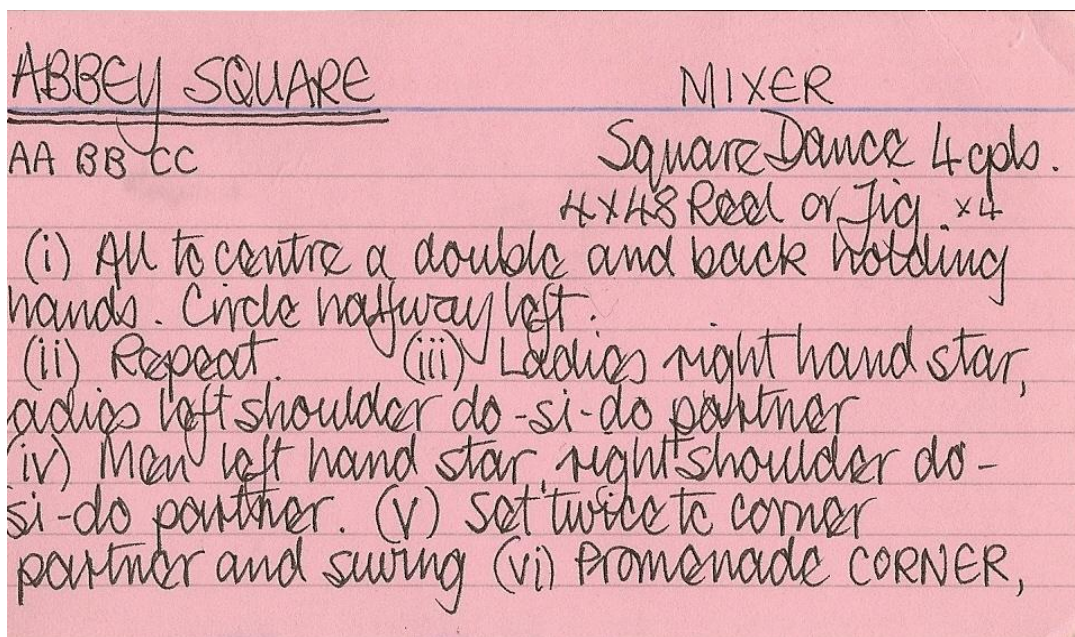 ABBEY SQUARE MIXER
AA BB CC Square Dance 4 cpls.
4x48 Reel or Jig x4
(i) All to centre a double and back holding
hands. Circle halfway left.
(ii) Repeat. (iii) Ladies right hand star,
adies left shoulder do-si-do partner
(iv) Men left hand star, right shoulder do-
si-do partner. (v) Set twice to corner
partner and swing (vi) Promenade CORNER,